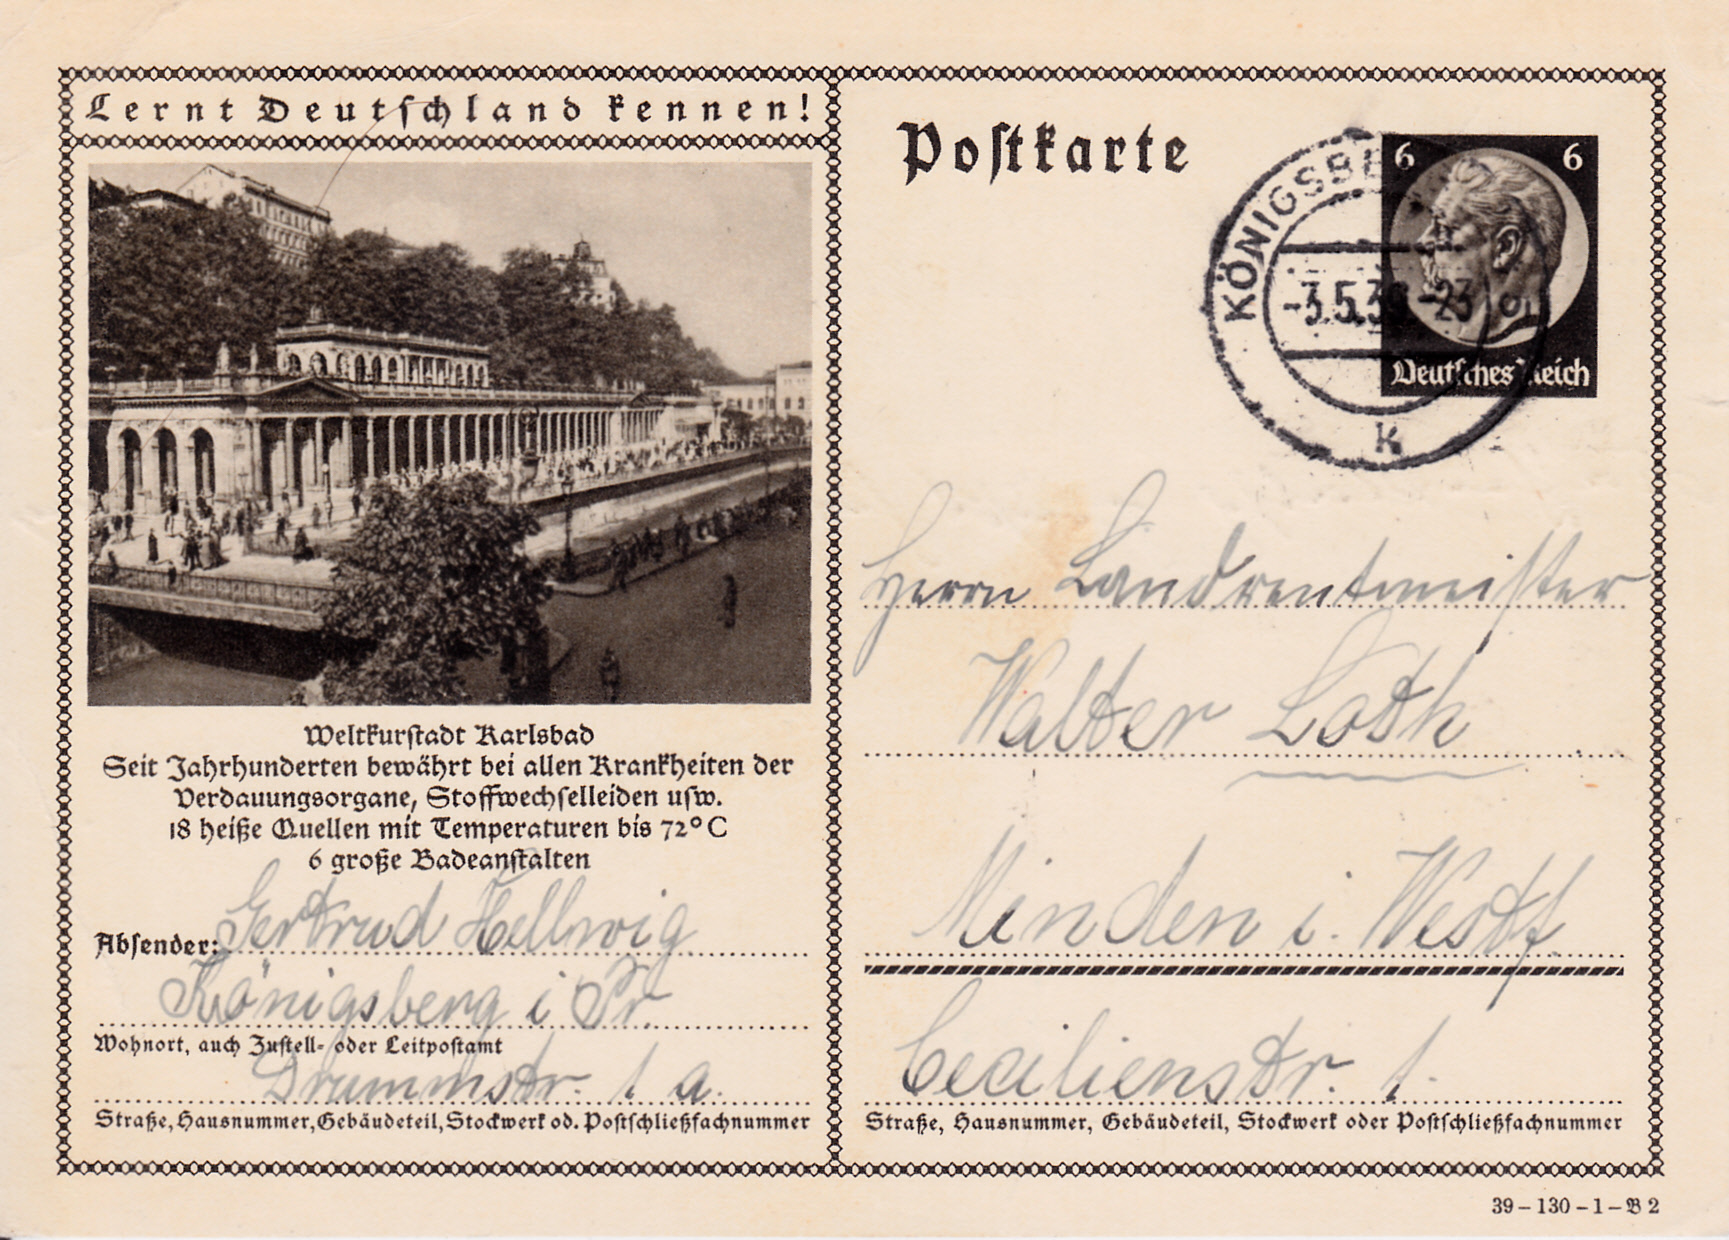 Lernt Deutschland kennen!
Weltkurstadt Karlsbad
Seit Jahrhunderten bewährt bei allen Krankheiten der
Verdauungsorgane, Stoffwechselleiden usw.
18 heiße Quellen mit Temperaturen bis 72° C
6 große Badeanstalten
Absender: Gertrud Hellwig
Königsberg i Pr
Wohnort, auch Zustell- oder Leitpostamt
Drummstr. 1 a.
Straße, Hausnummer, Gebäudeteil, Stockwerk od. Postschließfachnummer
Postkarte
6 6
Deutsches Reich
KÖNIGSBE
-3.5.39-23
k
Herrn Landrentmeister
Walter Loth
Minden i. Westf.
Cecilienstr. 1.
Straße, Hausnummer, Gebäudeteil, Stockwerk oder Postschließfachnummer
39 – 130 – 1 – B 2